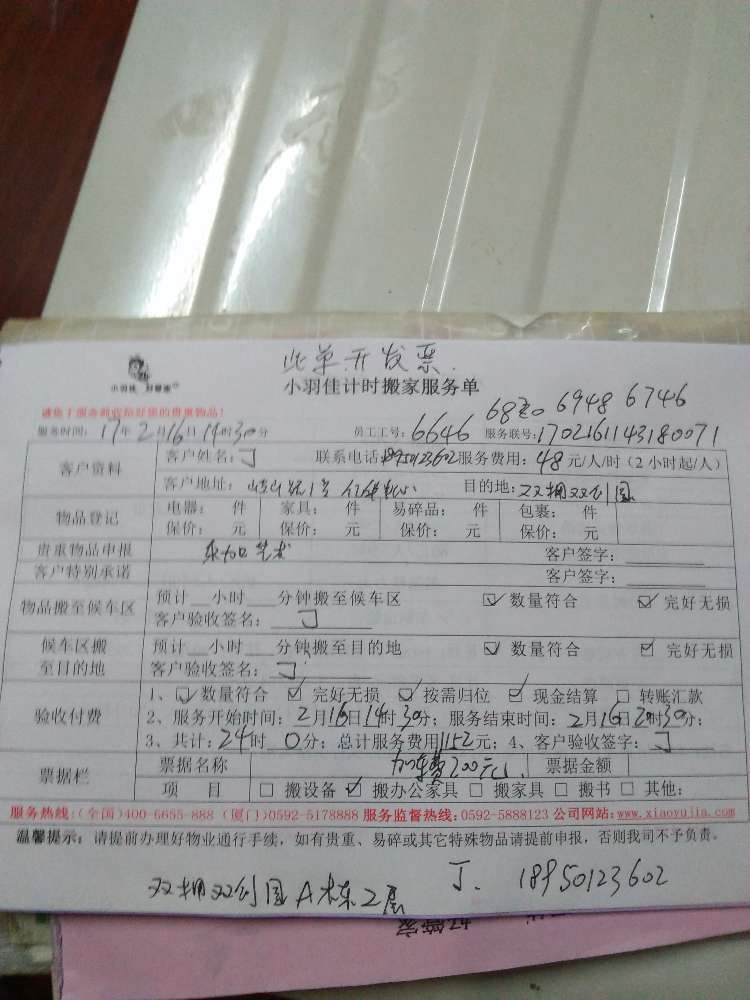 此单开发票.
小羽佳 好管家
小羽佳计时搬家服务单
6820 6948 6746
服务时间: 17年2月16日14时30分 员工工号: 6646 服务联号: 1702161143180071
客户资料
客户姓名: 丁 联系电话: 18950123602 服务费用: 48 元/人/时 (2小时起/人)
客户地址: 目的地: 双拥双创园
物品登记
电器: 件 家具: 件 易碎品: 件 包裹: 件
保价: 元 保价: 元 保价: 元 保价: 元
贵重物品申报 艺术 客户签字:
客户特别承诺 客户签字:
物品搬至候车区
预计 小时 分钟搬至候车区 ☑ 数量符合 ☑ 完好无损
客户验收签名: 丁
候车区搬至目的地
预计 小时 分钟搬至目的地 ☑ 数量符合 ☑ 完好无损
客户验收签名: 丁
验收付费
1、☑ 数量符合 ☑ 完好无损 ☑ 按需归位 ☑ 现金结算 □ 转账汇款
2、服务开始时间: 2月16日14时30分; 服务结束时间: 2月16日时30分;
3、共计: 24时 0分; 总计服务费用1152元; 4、客户验收签字: 丁
票据栏
票据名称 加车费200元 票据金额
项 目 □ 搬设备 ☑ 搬办公家具 □ 搬家具 □ 搬书 □ 其他:
服务热线: (全国)400-6655-888 (厦门)0592-5178888 服务监督热线: 0592-5888123 公司网站: www.xiaoyujia.com
温馨提示: 请提前办理好物业通行手续, 如有贵重、易碎或其它特殊物品请提前申报, 否则我司不予负责。
双拥双创园A栋2层 丁. 18950123602
好管家